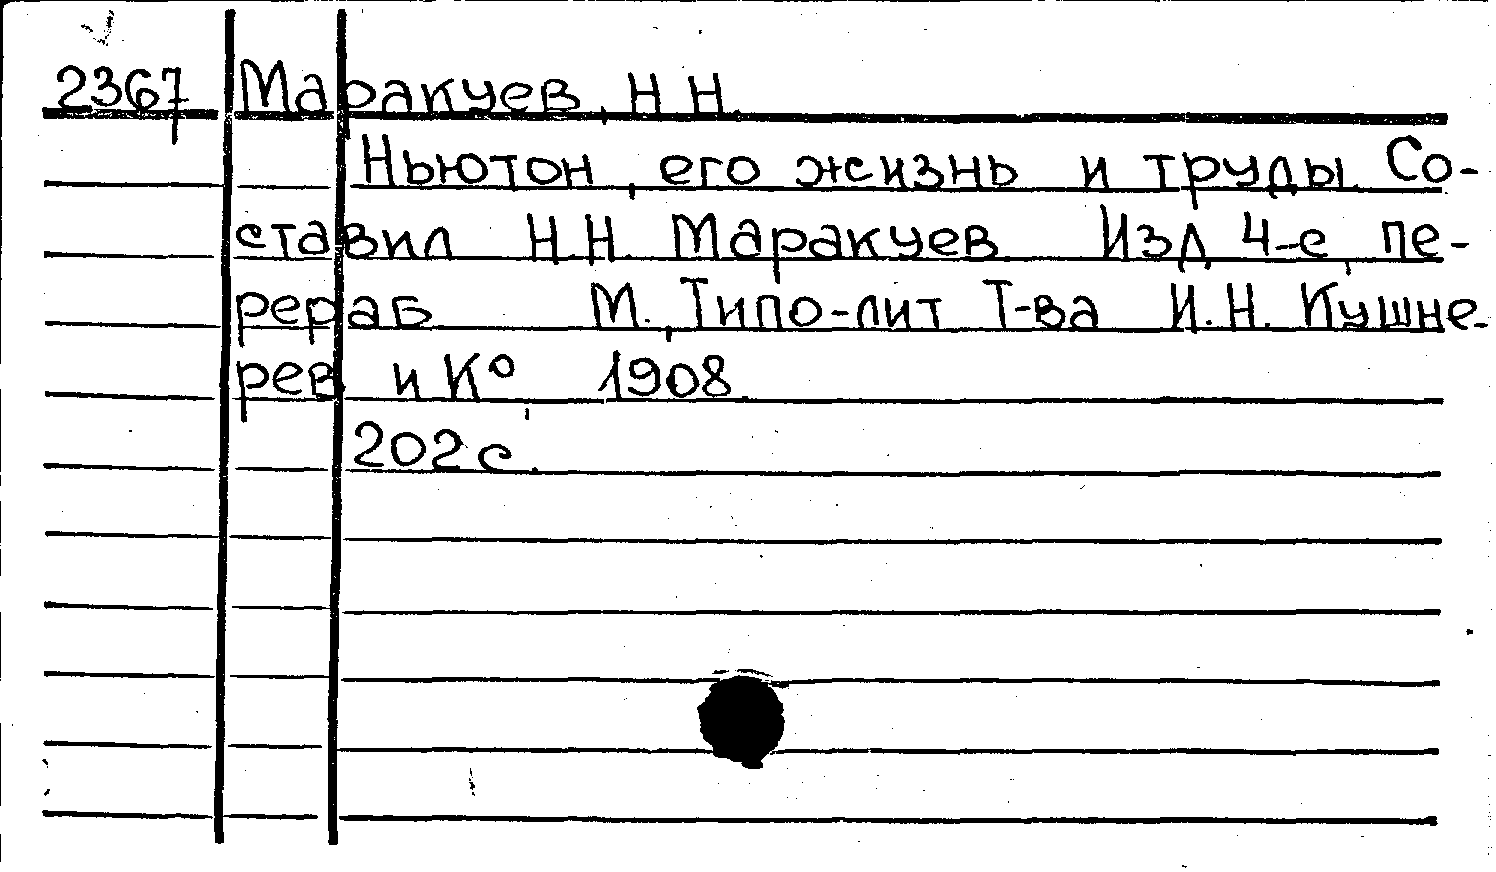 2367 Маракуев, Н.Н.
Ньютон, его жизнь и труды. Со-
ставил Н.Н. Маракуев. Изд. 4-е, пе-
рераб. М., Типо-лит. Т-ва И.Н. Кушне-
рев и К°, 1908.
202 с.